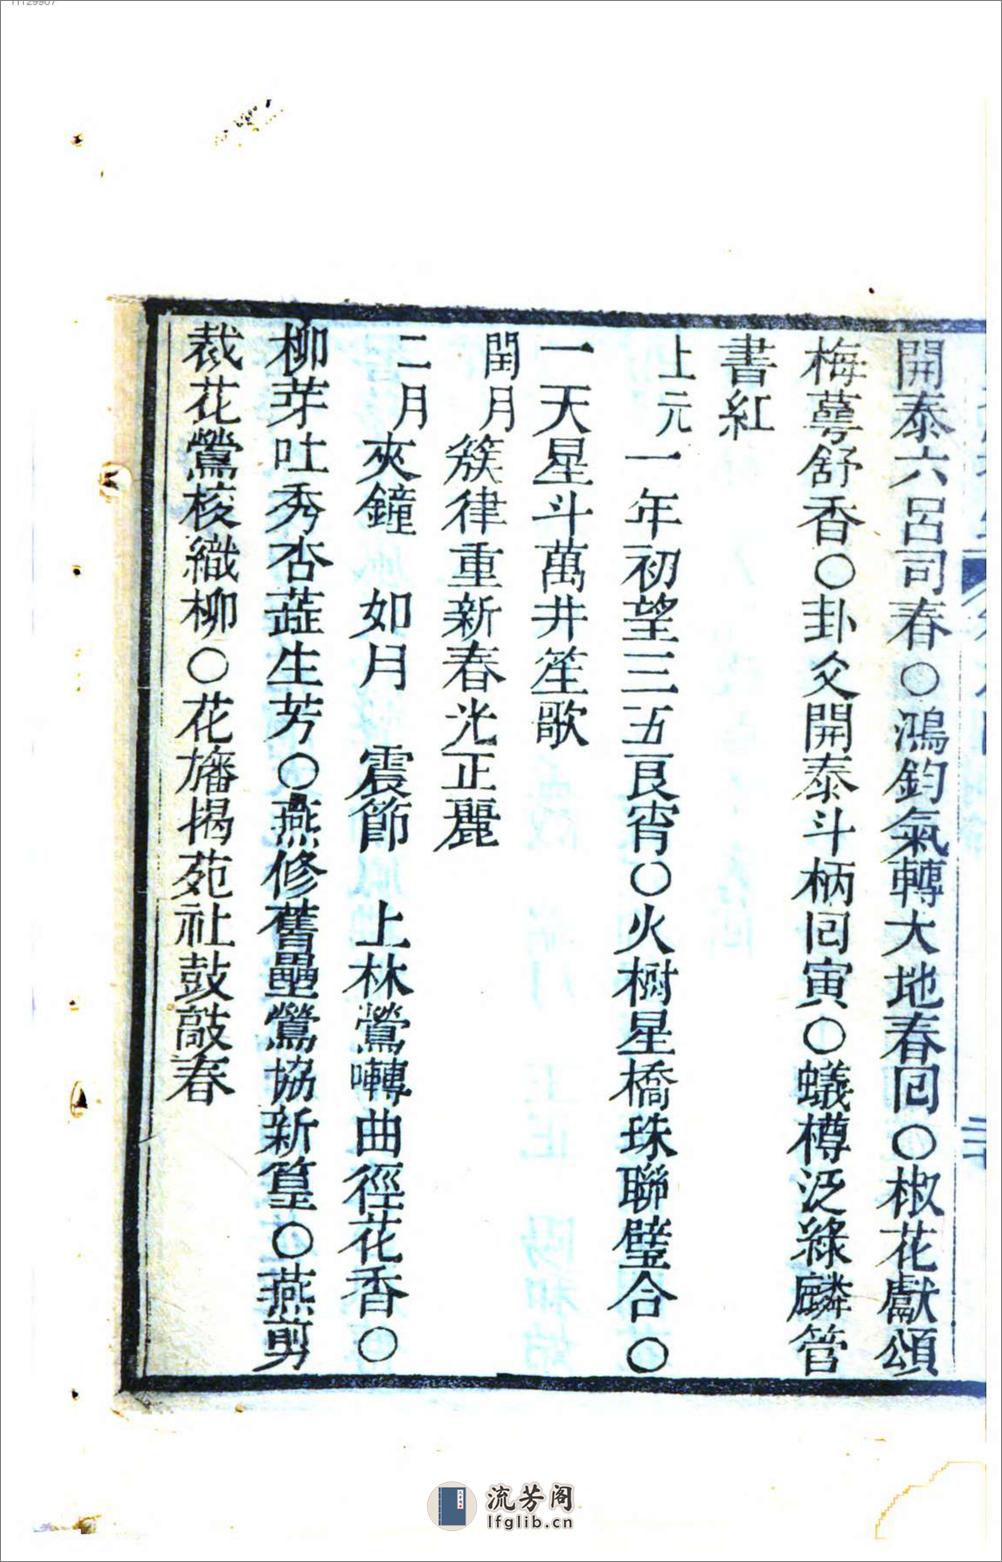 開泰六呂司春〇鴻鈞氣轉大地春回〇椒花獻頌
梅萼舒香〇卦爻開泰斗柄囘寅〇蟻樽泛綠麟管
書紅
上元一年初望三五良宵〇火樹星橋珠聯璧合〇
一天星斗萬井笙歌
閏月簇律重新春光正麗
二月夾鐘 如月 震節 上林鶯囀曲徑花香〇
柳芽吐秀杏蕋生芳〇燕修舊壘鶯協新篁〇燕剪
裁花鶯梭織柳〇花旛揭苑社鼓敲春
流芳阁
lfglib.cn